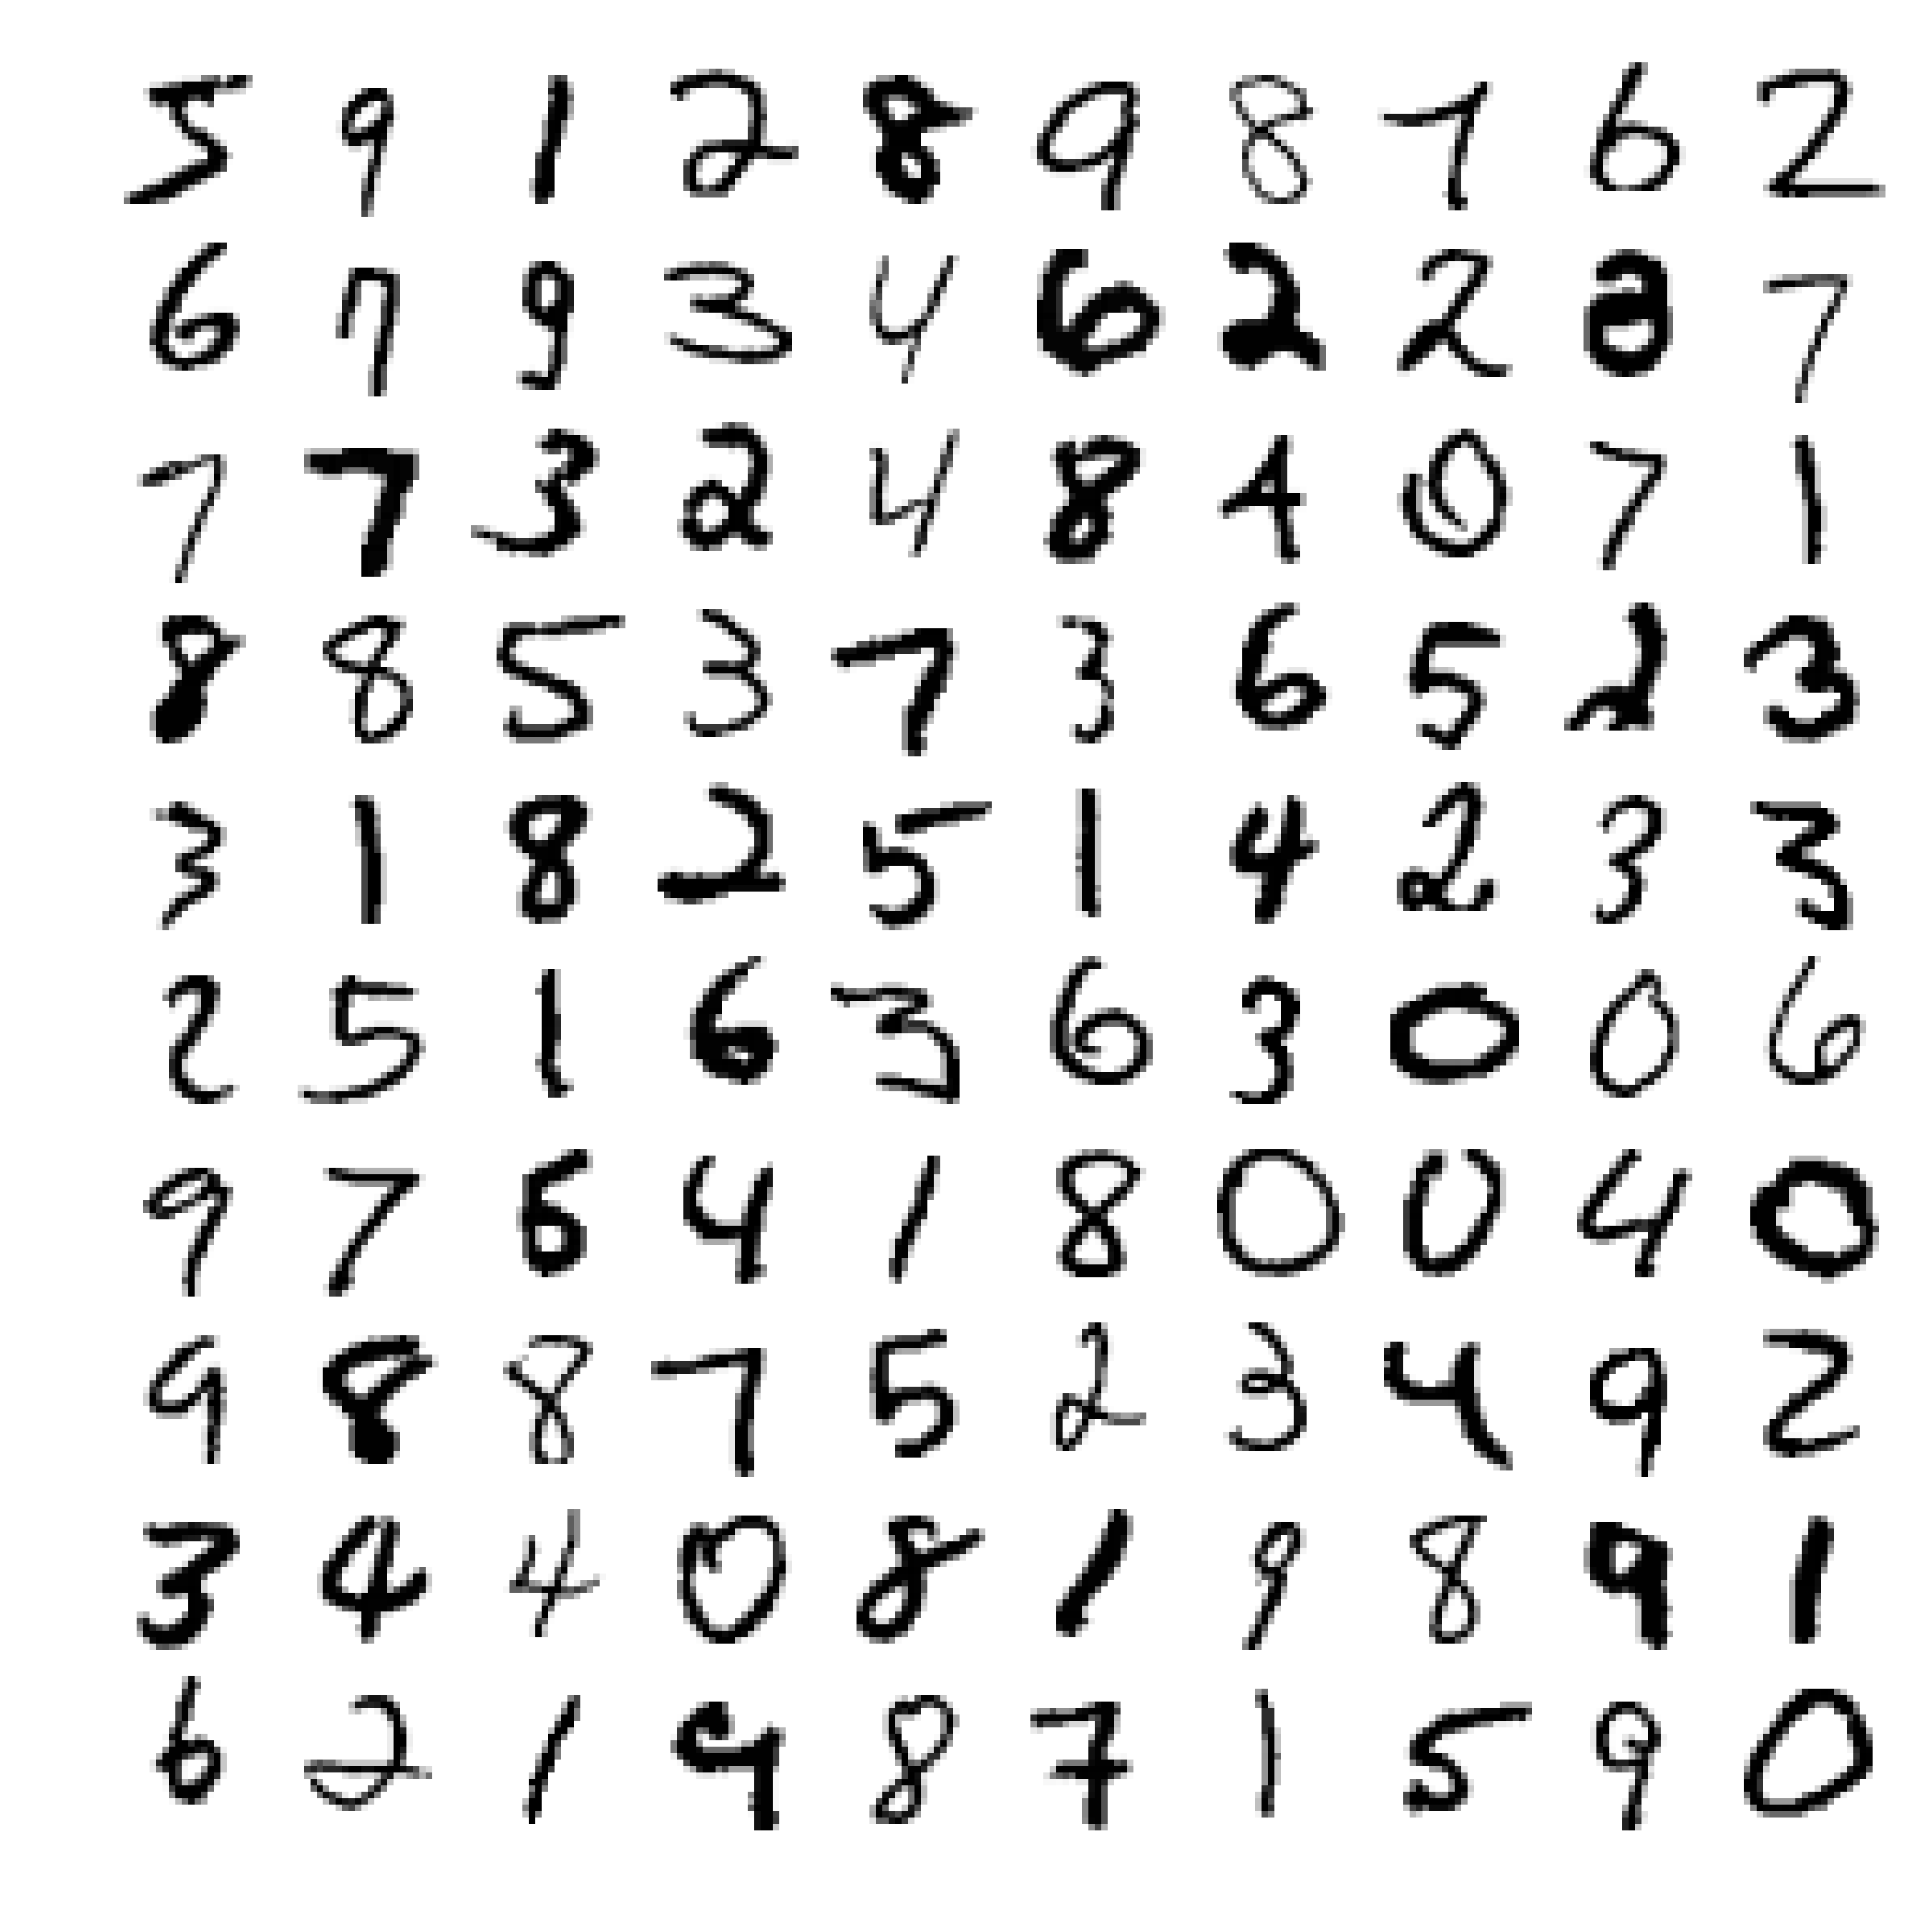 5 9 1 2 8 9 8 7 6 2
6 7 9 3 4 6 2 2 8 7
7 7 3 2 4 8 4 0 7 1
8 8 5 3 7 3 6 5 2 3
3 1 8 2 5 1 4 2 3 3
2 5 1 6 3 6 3 0 0 6
9 7 6 4 1 8 0 0 4 0
9 8 8 7 5 2 3 4 9 2
3 4 4 0 8 1 9 8 9 1
6 2 1 9 8 7 1 5 9 0